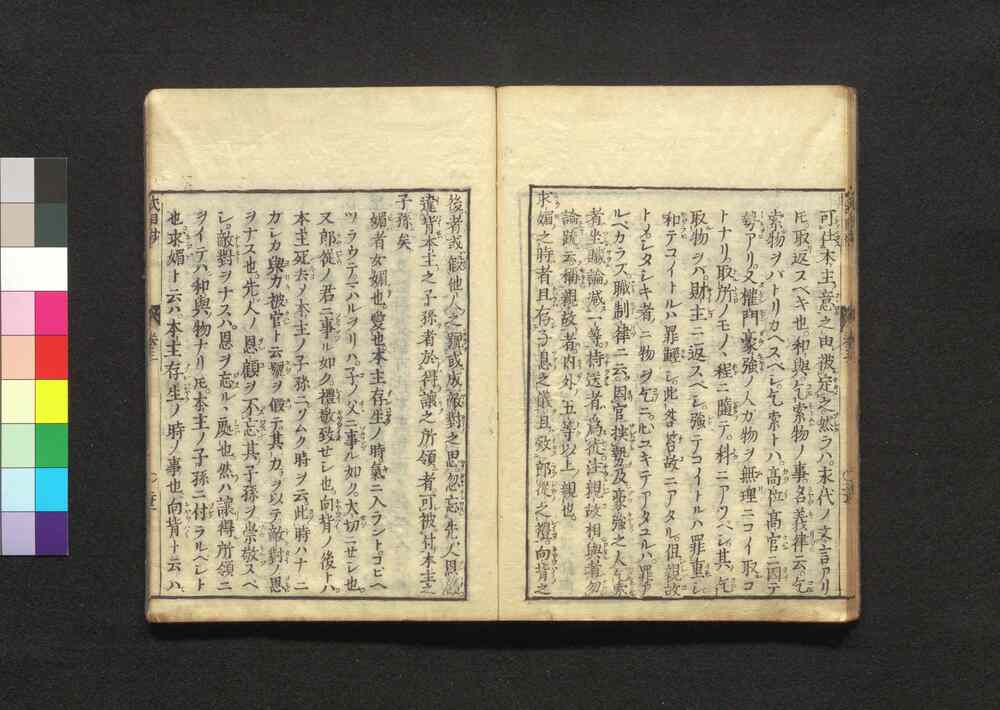 可任本主ノ意之由被定之然ラハ末代ノ文言アリ
𪜈取返スヘキ也和與乞索物ノ事名義律ニ云乞
索物ヲバトリカヘスヘシ乞索トハ高位高官ニ因テ
勢アリ又權門豪強ノ人カ物ヲ無理ニコイ取コ
トナリ取所ノモノヽ程ニ隨テ科ニアツヘシ其乞
取物ヲハ財主ニ返スヘシ強テコイトルハ罪重シ
和テコイトルハ罪輕シ此各答故ニアタル但親故
トメシタシキ者ニ物ヲ乞ニ心ユキテアタユルハ罪ア
ルヘカラス職制律ニ云因官挾勢及豪強之人乞索
者坐贓論減一等持送者為從注親故相與者勿
論疏云稱親故者内外五等以上親也
求媚之時者且有子息之儀且致郎從之禮向背之
後者或假他人之號或成敵對之思忽忘先人恩顧
違背本主之子孫者於得讓之所領者可被付本主之
子孫矣
媚者女媚也愛也本主存生ノ時氣ニ入ラントコビヘ
ツラウテアルヲリハ子ノ父ニ事ル如ク大切ニセシ也
又郎從ノ君ニ事ル如ク禮敬致セシ也向背ノ後トハ
本主死去ノ本主ノ子孫ニソムク時ヲ云此時ハナニ
カシカ與力被官ト云號ヲ假テ其カヲ以テ敵對ノ思
ヲナス也先人ノ恩顧ヲ不忘其子孫ヲ崇敬スベ
シ敵對ヲナスハ恩ヲ忘ルヽ處也然ハ讓得所領ニ
ヲイテハ和與ノ物ナリ𪜈本主ノ子孫ニ付ラルベシト
也求媚ト云ハ本主存生ノ時ノ事也向背ト云ハ